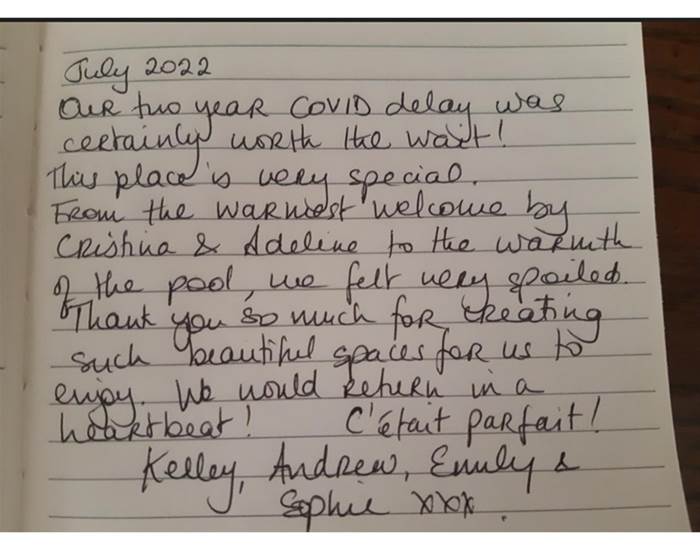 July 2022
Our two year COVID delay was
certainly worth the wait!
This place is very special.
From the warmest welcome by
Cristina & Adeline to the warmth
of the pool, we felt very spoiled.
Thank you so much for creating
such beautiful spaces for us to
enjoy. We would return in a
heartbeat! C'était parfait!
Kelley, Andrew, Emily &
Sophie xxx.